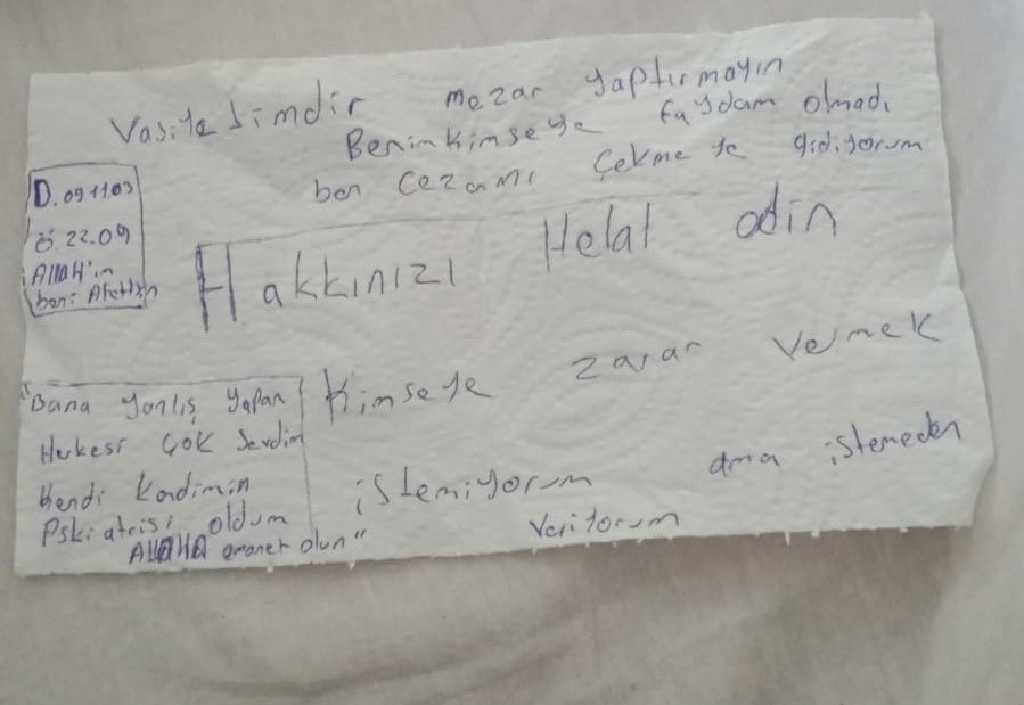 Vasiyetimdir mezar yaptırmayın
Benim kimseye faydam olmadı
ben cezamı çekmeye gidiyorum
D. 09.11.03
Ö. 22.09
ALLAH'ım
beni Afettsin
Hakkınızı Helal edin
Kimseye zarar vermek
istemiyorum ama istemeden
veriyorum
"Bana yanlış yapan
Herkesi çok sevdim
Kendi Kendimin
Pskiatrisi oldum
ALLAHA emanet olun"